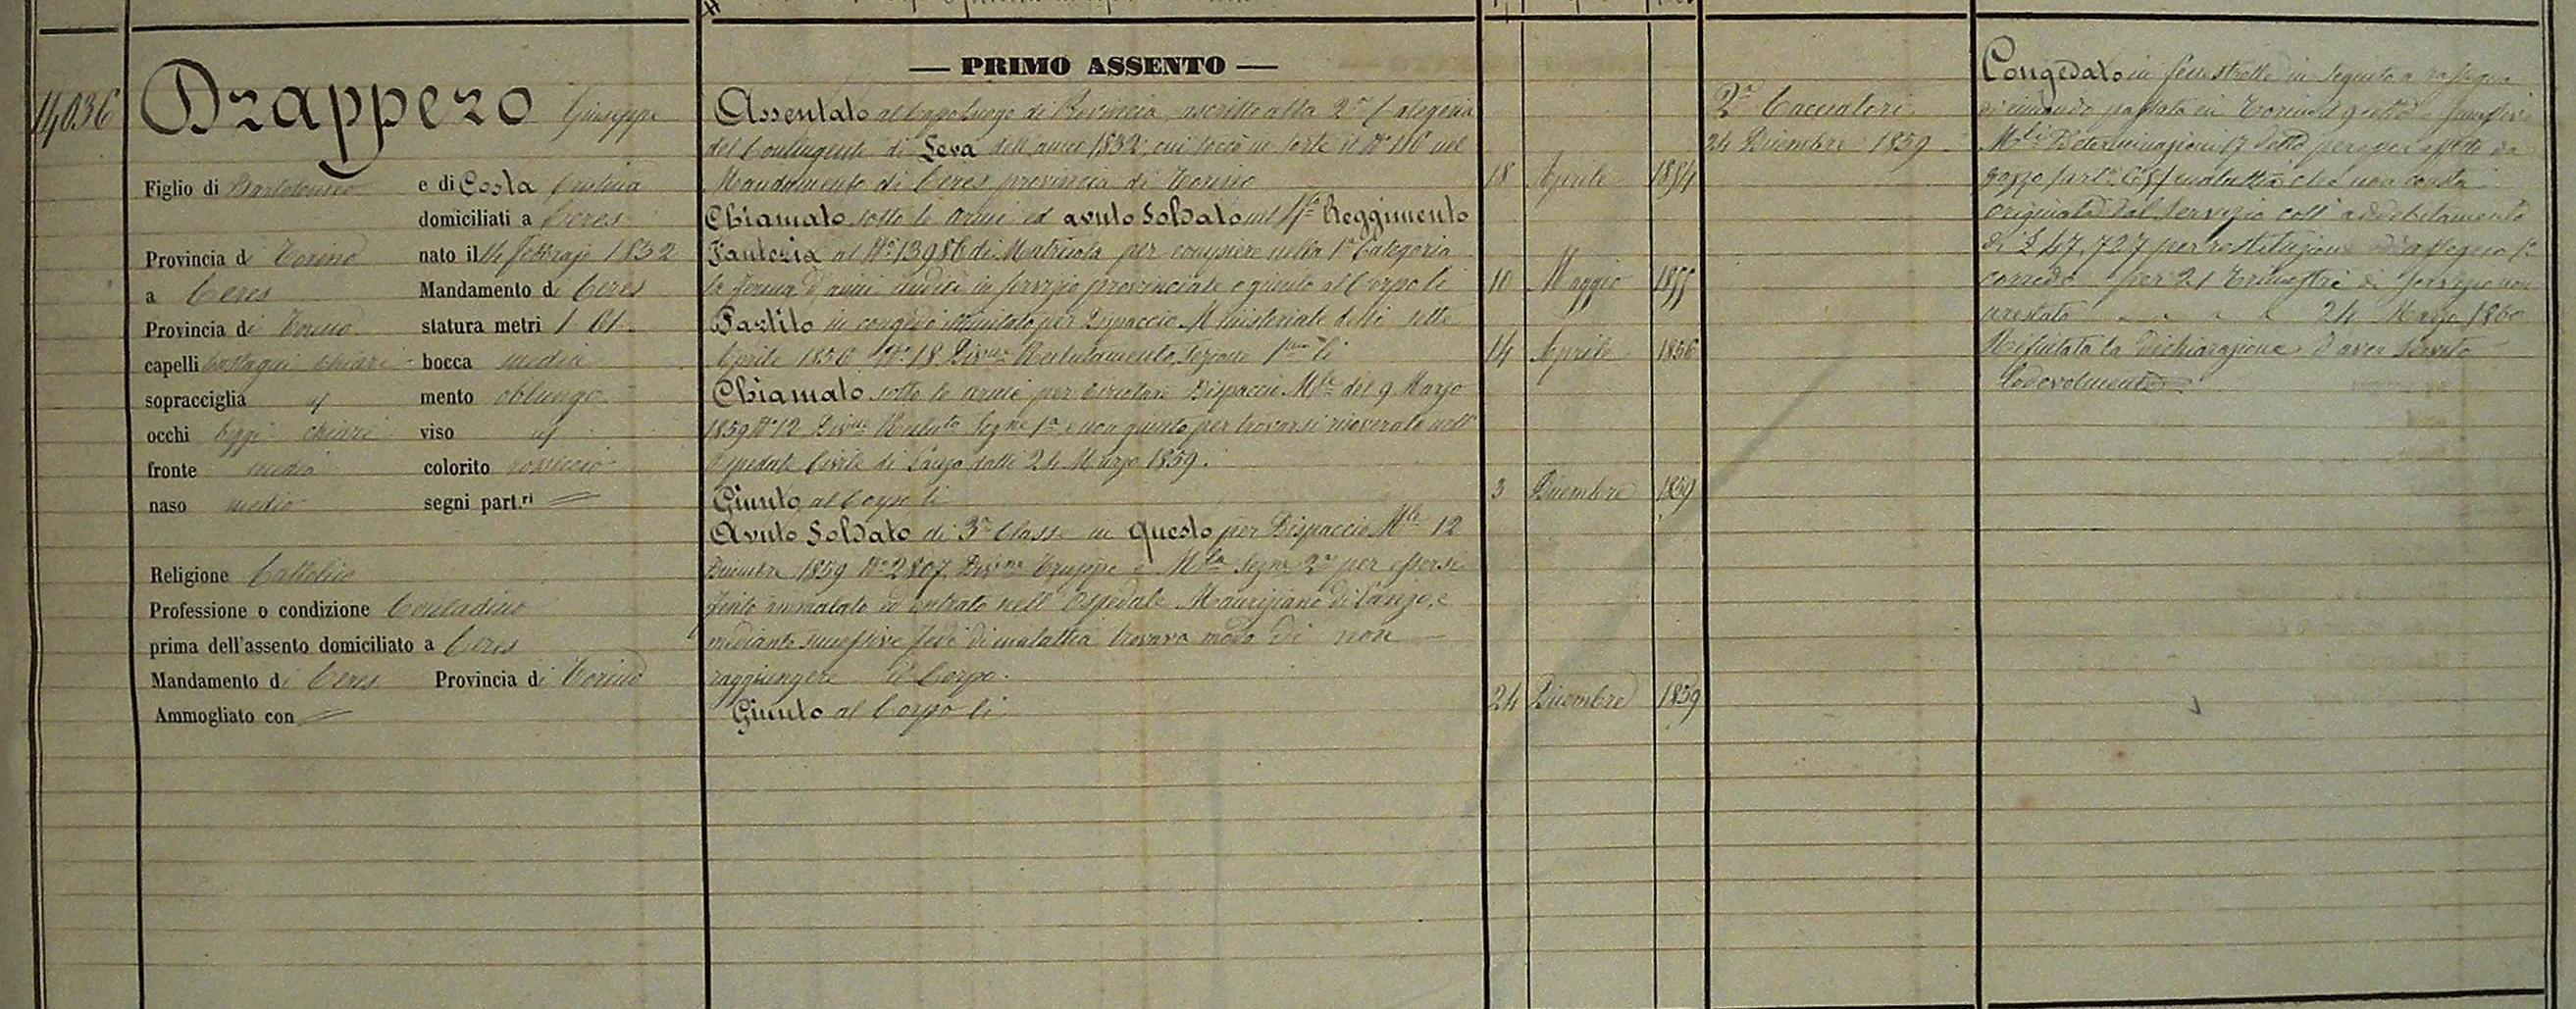 PRIMO ASSENTO
14036
Drappero Giuseppe
Figlio di Bartolomeo e di Costa Cristina
domiciliati a Ceres
Provincia di Torino nato il 14 febbrajo 1832
a Ceres Mandamento di Ceres
Provincia di Torino statura metri 1. 61.
capelli castagni chiari bocca media
sopracciglia id mento oblungo
occhi biggi chiari viso id
fronte media colorito
naso medio segni part.ri
Religione Cattolica
Professione o condizione Contadino
prima dell'assento domiciliato a Ceres
Mandamento di Ceres Provincia di Torino
Ammogliato con
Assentato al Capoluogo di Provincia, ascritto alla 2a Categoria
del Contingente di Leva dell'anno 1832, cui toccò in sorte il No 116 nel
Mandamento di Ceres provincia di Torino 18 Aprile 1854
Chiamato sotto le armi ed avuto Soldato nel 4to Reggimento
Fanteria al No 13986 di Matricola per compiere nella 1a Categoria
la ferma d'anni undici in servizio provinciale e giunto al Corpo li 10 Maggio 1855
Partito in congedo illimitato per Dispaccio Ministeriale delli sette
Aprile 1856 No 18 Divne Reclutamento, Sezione 1ma li 14 Aprile 1856
Chiamato sotto le armi per circolare Dispaccio Mle del 9 Marzo
1859 No 12 Divne Recluta Segne 1a e non giunto per trovarsi ricoverato nell'
Ospedale Civile di Lanzo dalli 24 Marzo 1859.
Giunto al Corpo li 3 Dicembre 1859
Avuto Soldato di 3a Classe in questo per Dispaccio Mle 12
Dicembre 1859 No 2807 Divne Truppe e Mla Segne 2a per essersi
finto ammalato ed entrato nell'Ospedale Mauriziano di Lanzo, e
mediante successive fedi di malattia trovava modo di non
raggiungere il Corpo.
Giunto al Corpo li 24 Dicembre 1859
2a Cacciatori
24 Dicembre 1859
Congedato in fenestrelle in seguito a rassegna
di rimando passata in Torino il 9 e
Mli Determinazioni 17 detto per affetto da
gozzo malattia che non consta
originata dal servizio coll'addebitamento
di £ 47,727 per restituzione d'assegno 1o
corredo per 21 trimestri di servizio non
prestato 24 Marzo 1860
Rifiutata la dichiarazione d'aver servito
lodevolmente